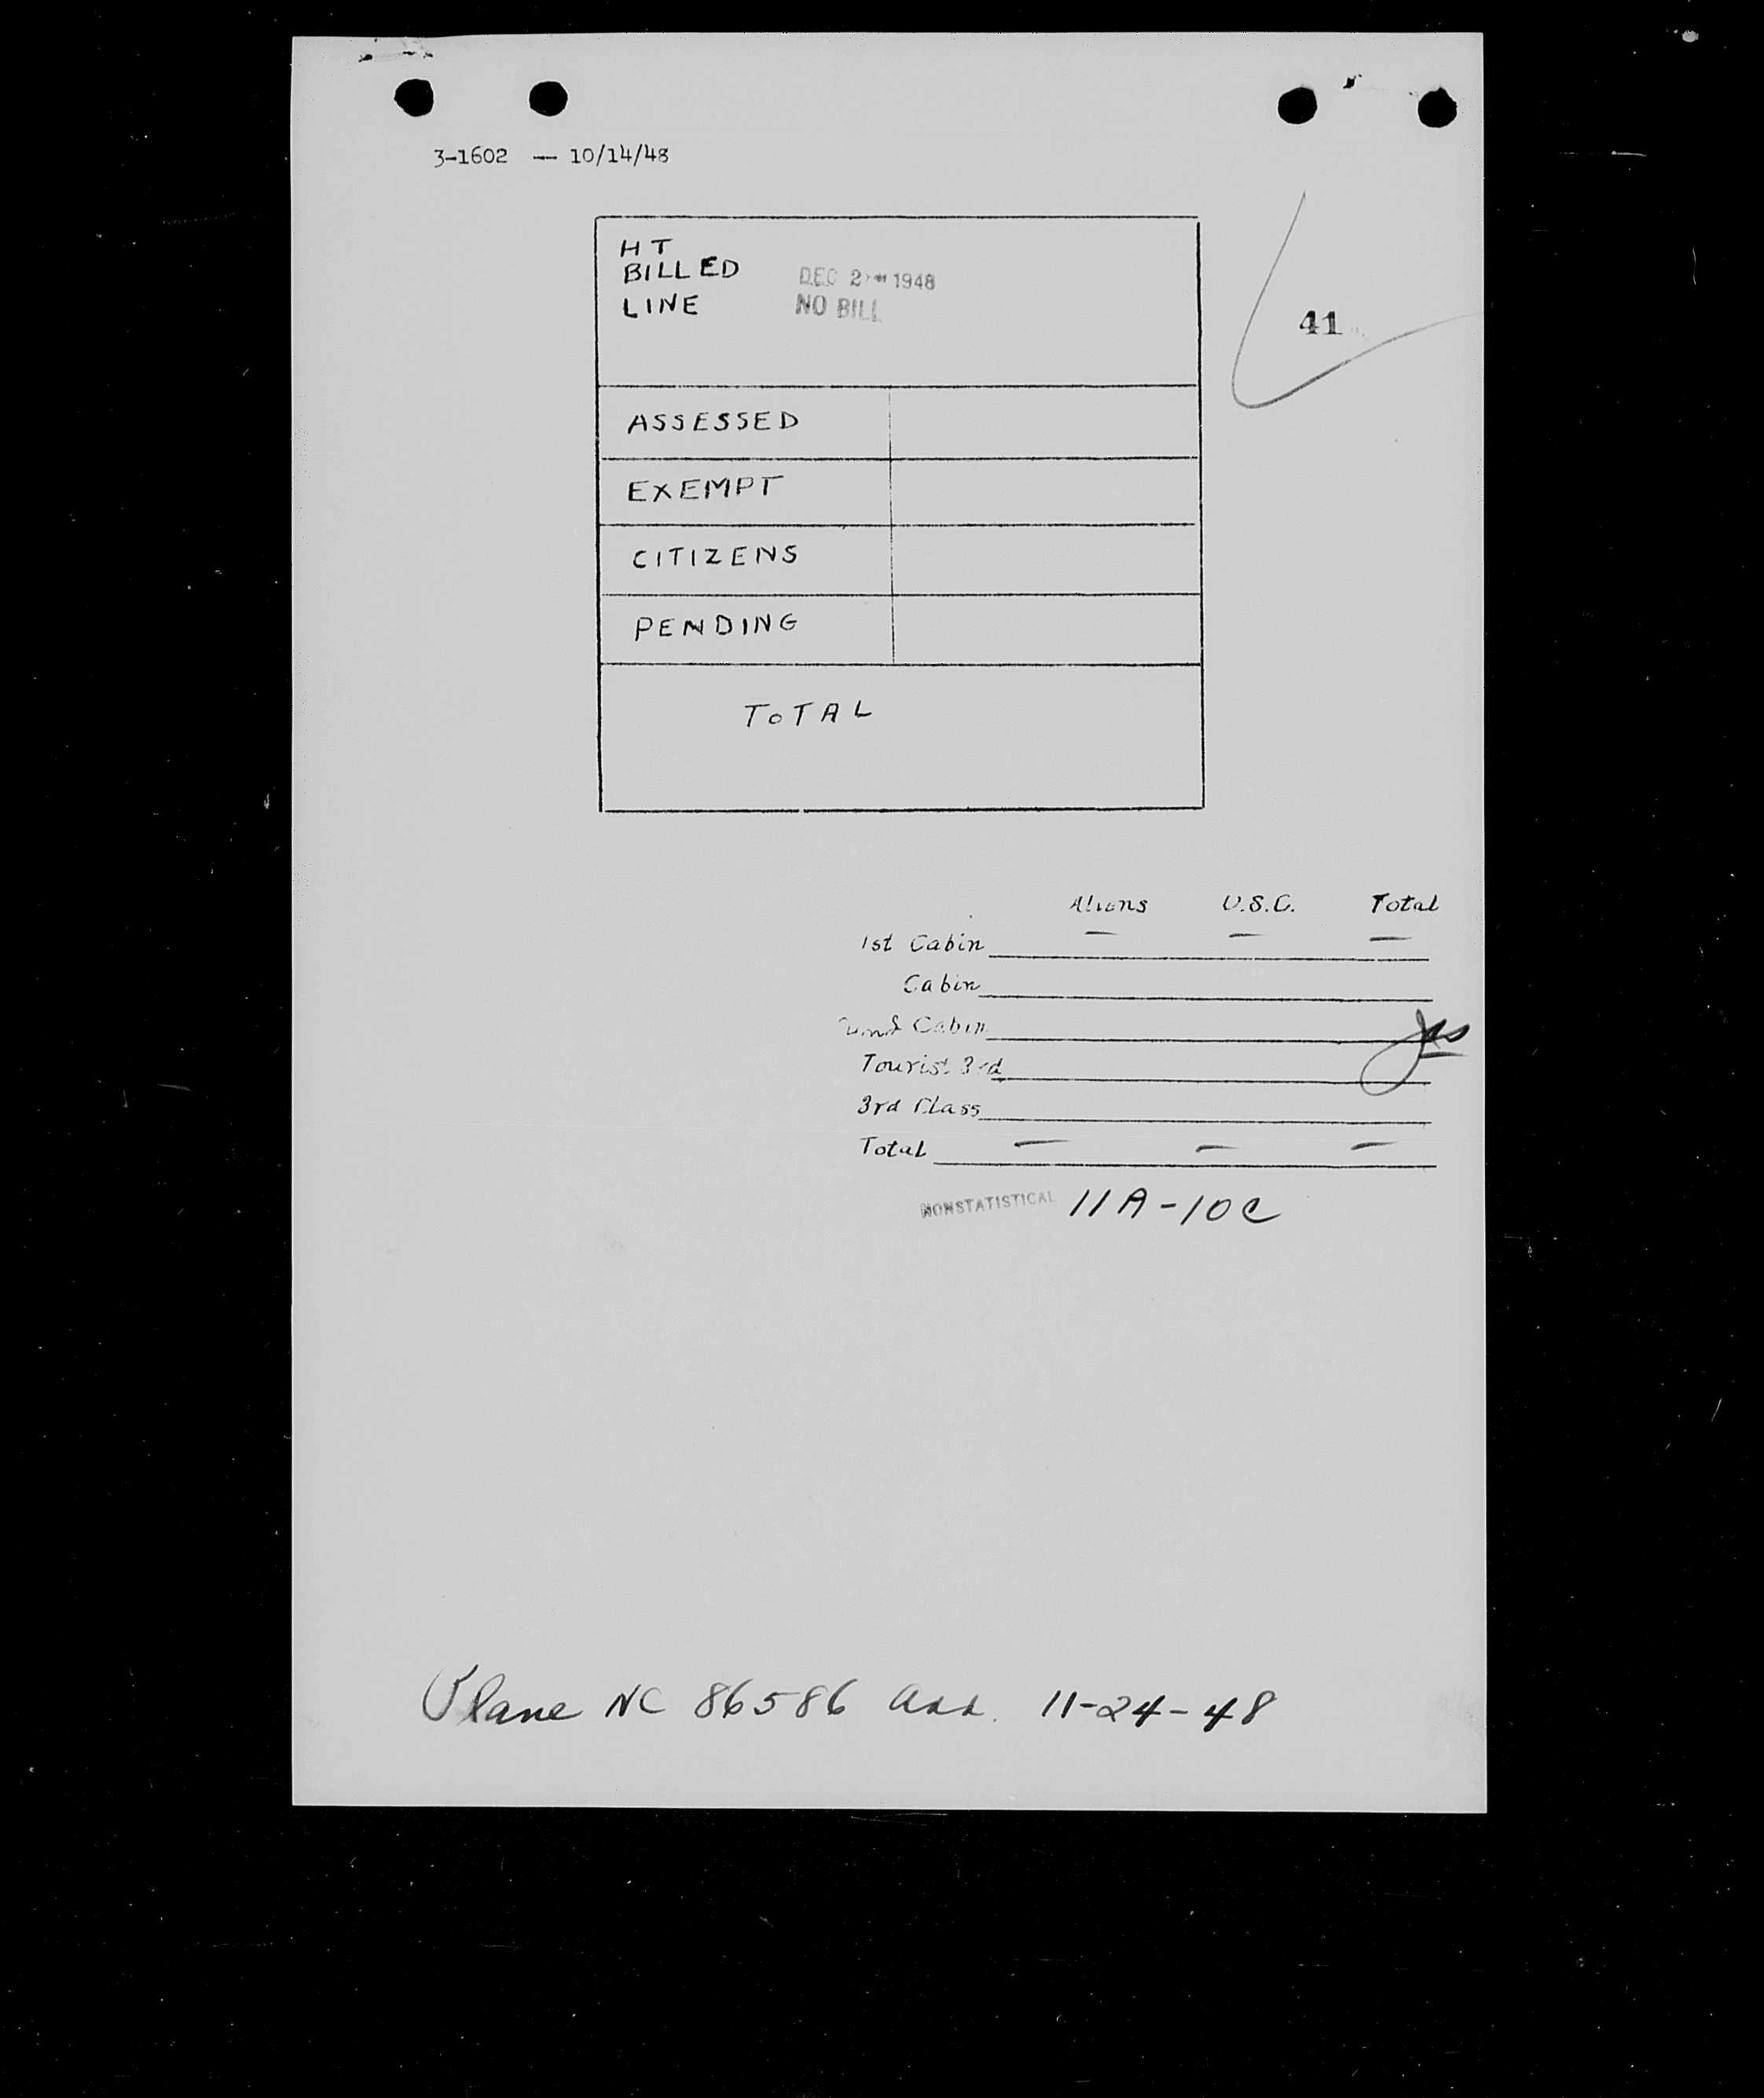 3-1602 — 10/14/48
HT
BILLED
LINE
DEC 2 1948
NO BILL
41
ASSESSED
EXEMPT
CITIZENS
PENDING
TOTAL
Aliens U.S.C. Total
1st Cabin — — —
Cabin
2nd Cabin
Tourist 3rd
3rd Class
Total — — —
NONSTATISTICAL 11A-10C
Plane NC 86586 arr. 11-24-48